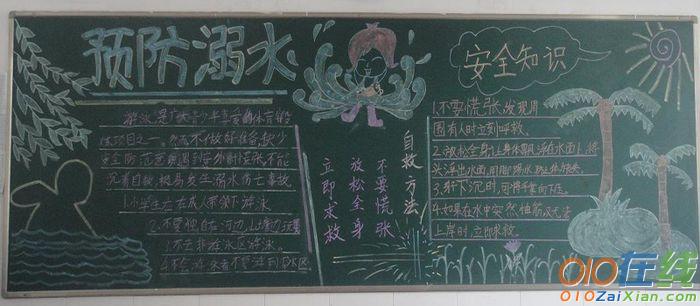 预防溺水
游泳是广大青少年喜爱的体育锻
炼项目之一。然而不做好准备、缺少
安全防范意识,遇到意外时慌张、不能
沉着自救,极易发生溺水伤亡事故。
1.小学生去在成人带领下游泳
2.不要独自在河边、山塘边玩耍
3.不去非游泳区游泳。
4.不会游泳者不要游到深水区
自救方法
不要慌张
放松全身
立即求救
安全知识
1.不要慌张,发现周
围有人时立刻呼救。
2.放松全身,让身体飘浮在水面上,将
头浮出水面,用脚踢水
3.身体下沉时,可将手掌向下压。
4.如果在水中突然抽筋,又无法
上岸时,立即求救。
010在线
010ZaiXian.com